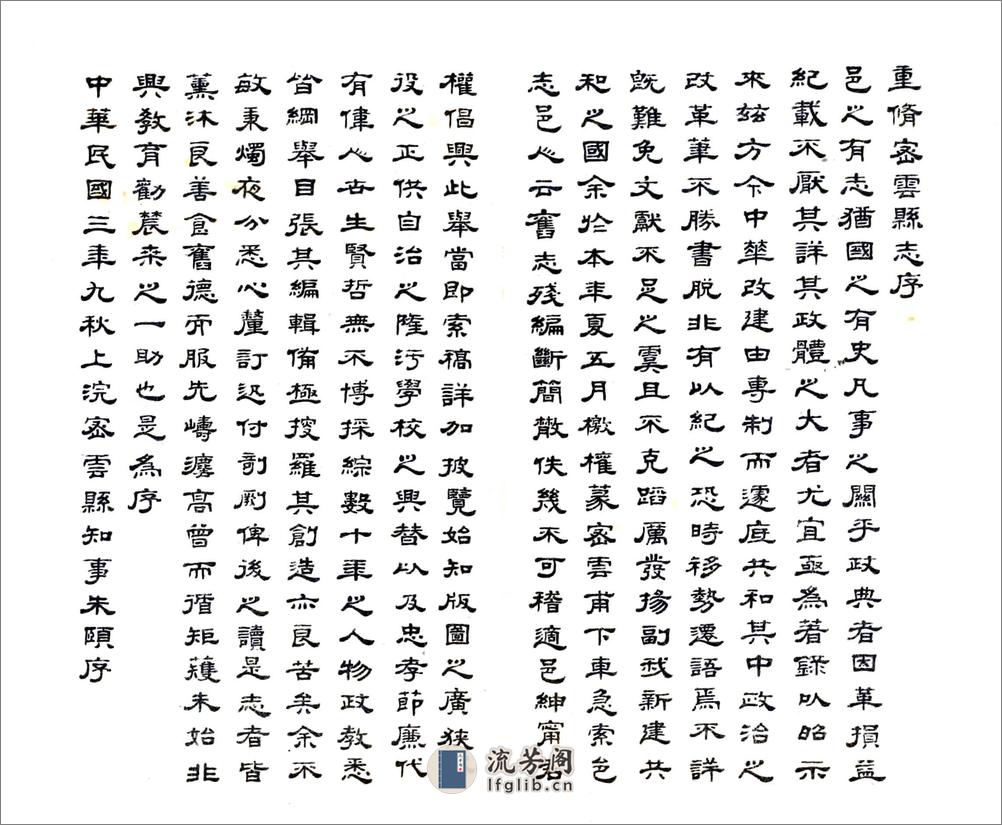 重脩密雲縣志序
邑之有志猶國之有史凡事之關乎政典者因革損益
紀載不厭其詳其政體之大者尤宜亟為著錄以昭示
來玆方今中華改建由專制而遽庭共和其中政治之
改革筆不勝書脫非有以紀之恐時移勢遷語焉不詳
旣難免文獻不足之虞且不克蹈厲發揚副我新建共
和之國余於本年夏五月檄權篆密雲甫下車急索邑
志邑人云舊志殘編斷簡散佚幾不可稽適邑紳甯君
權倡興此舉當即索稿詳加披覽始知版圖之廣狹
役之正供自治之隆汚學校之興替以及忠孝節廉代
有偉人古生賢哲無不博採綜數十年之人物政教悉
皆綱舉目張其編輯備極搜羅其創造亦良苦矣余不
敏秉燭夜分悉心釐訂迟付剞劂俾後之讀是志者皆
薰沐良善食舊德而服先疇遵高曾而循矩矱未始非
興教育勸農桑之一助也是為序
中華民國三年九秋上浣密雲縣知事朱頤序
流芳阁
lfglib.cn